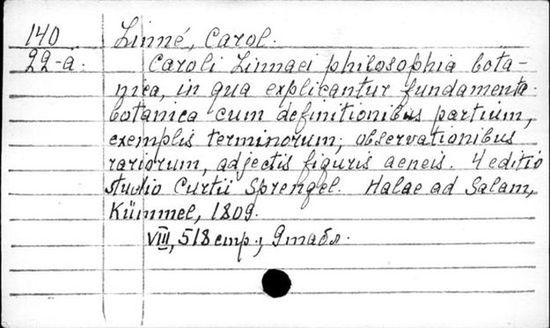 140 Linné, Carol.
22-a. Caroli Linnaei philosophia bota-
nica, in qua explicantur fundamenta
botanica cum definitionibus partium,
exemplis terminorum, observationibus
rariorum, adjectis figuris aeneis. 4 editio
studio Curtii Sprengel. Halae ad Salam,
Kümmel, 1809.
VIII, 518 стр., 9 табл.